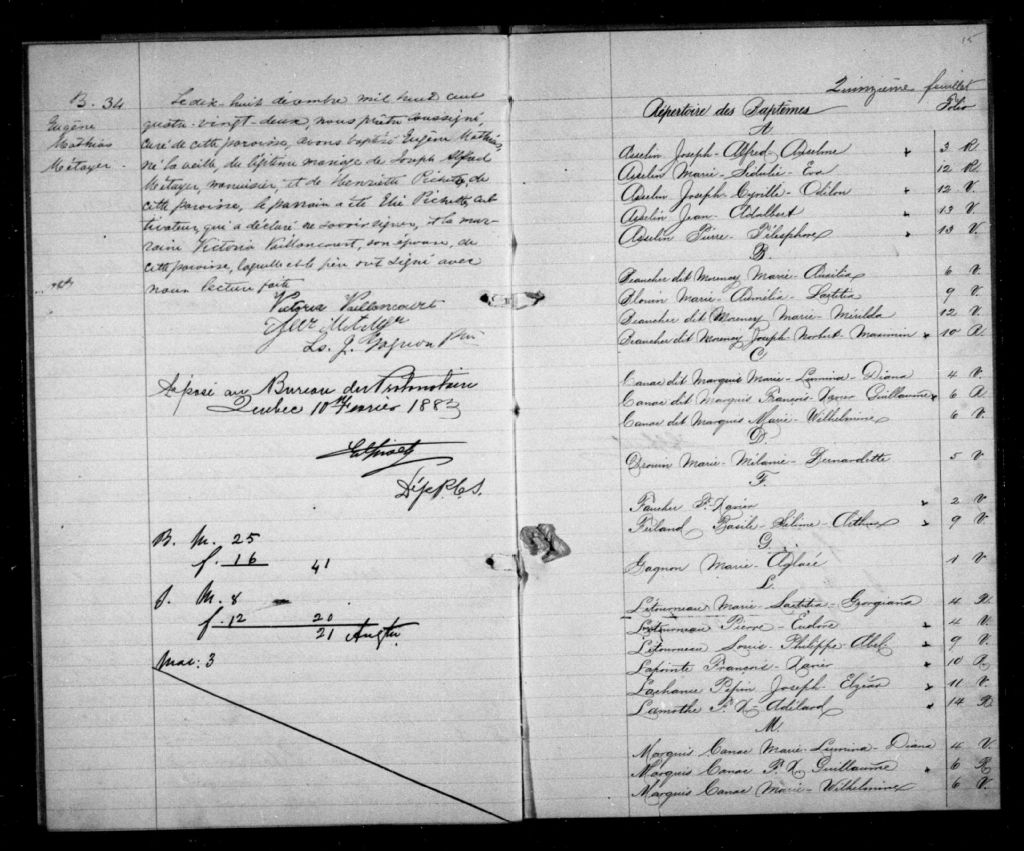 B. 34
Eugène
Mathias
Métayer.
Le dix-huit décembre mil huit cent
quatre-vingt-deux, nous prêtre soussigné,
curé de cette paroisse, avons baptisé Eugène Mathias,
né la veille, du légitime mariage de Joseph Alfred
Métayer, menuisier, et de Henriette Picket, de
cette paroisse, le parrain a été Elie Pickett, cul-
tivateur, qui a déclaré ne savoir signer, et la mar-
raine Victoria Vaillancourt, son épouse, de
cette paroisse, laquelle et le père ont signé avec
nous lecture faite
Victoria Vaillancourt
Ls. J. Gagnon Ptre
Déposé au Bureau du Protonotaire
Québec 10 Février 1883
B. M. 25
f. 16 41
S. M. 8
f. 12 20
21 Augtn
Mar: 3
15
Quinzième feuillet
Répertoire des Baptêmes Folio
A
Asselin Joseph-Alfred Anselme 3 R.
Asselin Marie-Sedulie-Eva 12 R.
Asselin Joseph-Cyrille-Odilon 12 V.
Asselin Jean-Adalbert 13 V.
Asselin Pierre-Télesphore 13 V.
B.
Beaucher dit Morency Marie-Ausilia 6 V.
Blouin Marie-Aumélia-Laetitia 9 V.
Beaucher dit Morency Marie-Mérilda 12 V.
Beaucher dit Morency Joseph-Norbert-Maximin 10 R.
C.
Canac dit Marquis Marie-Lumina-Diana 4 V.
Canac dit Marquis François-Xavier Guillaume 6 R
Canac dit Marquis Marie-Wilhelmine 6 V.
D.
Drouin Marie-Mélanie-Bernardette 5 V.
F.
Faucher F. Xavier 2 V.
Ferland Basile-Selime-Arthur 9 V.
G.
Gagnon Marie-Aglaé 1 V
L.
Létourneau Marie-Laetitia-Georgiana 4 R.
Letourneau Pierre-Eudore 4 V.
Létourneau Louis-Philippe-Abel 9 V.
Lapointe François-Xavier 10 R.
Lachance Pépin Joseph-Elzéar 11 V.
Lamothe F. X. Adélard 14 R
M.
Marquis Canac Marie-Lumina-Diana 4 V.
Marquis Canac F. X. Guillaume 6 R
Marquis Canac Marie-Wilhelmine 6 V.